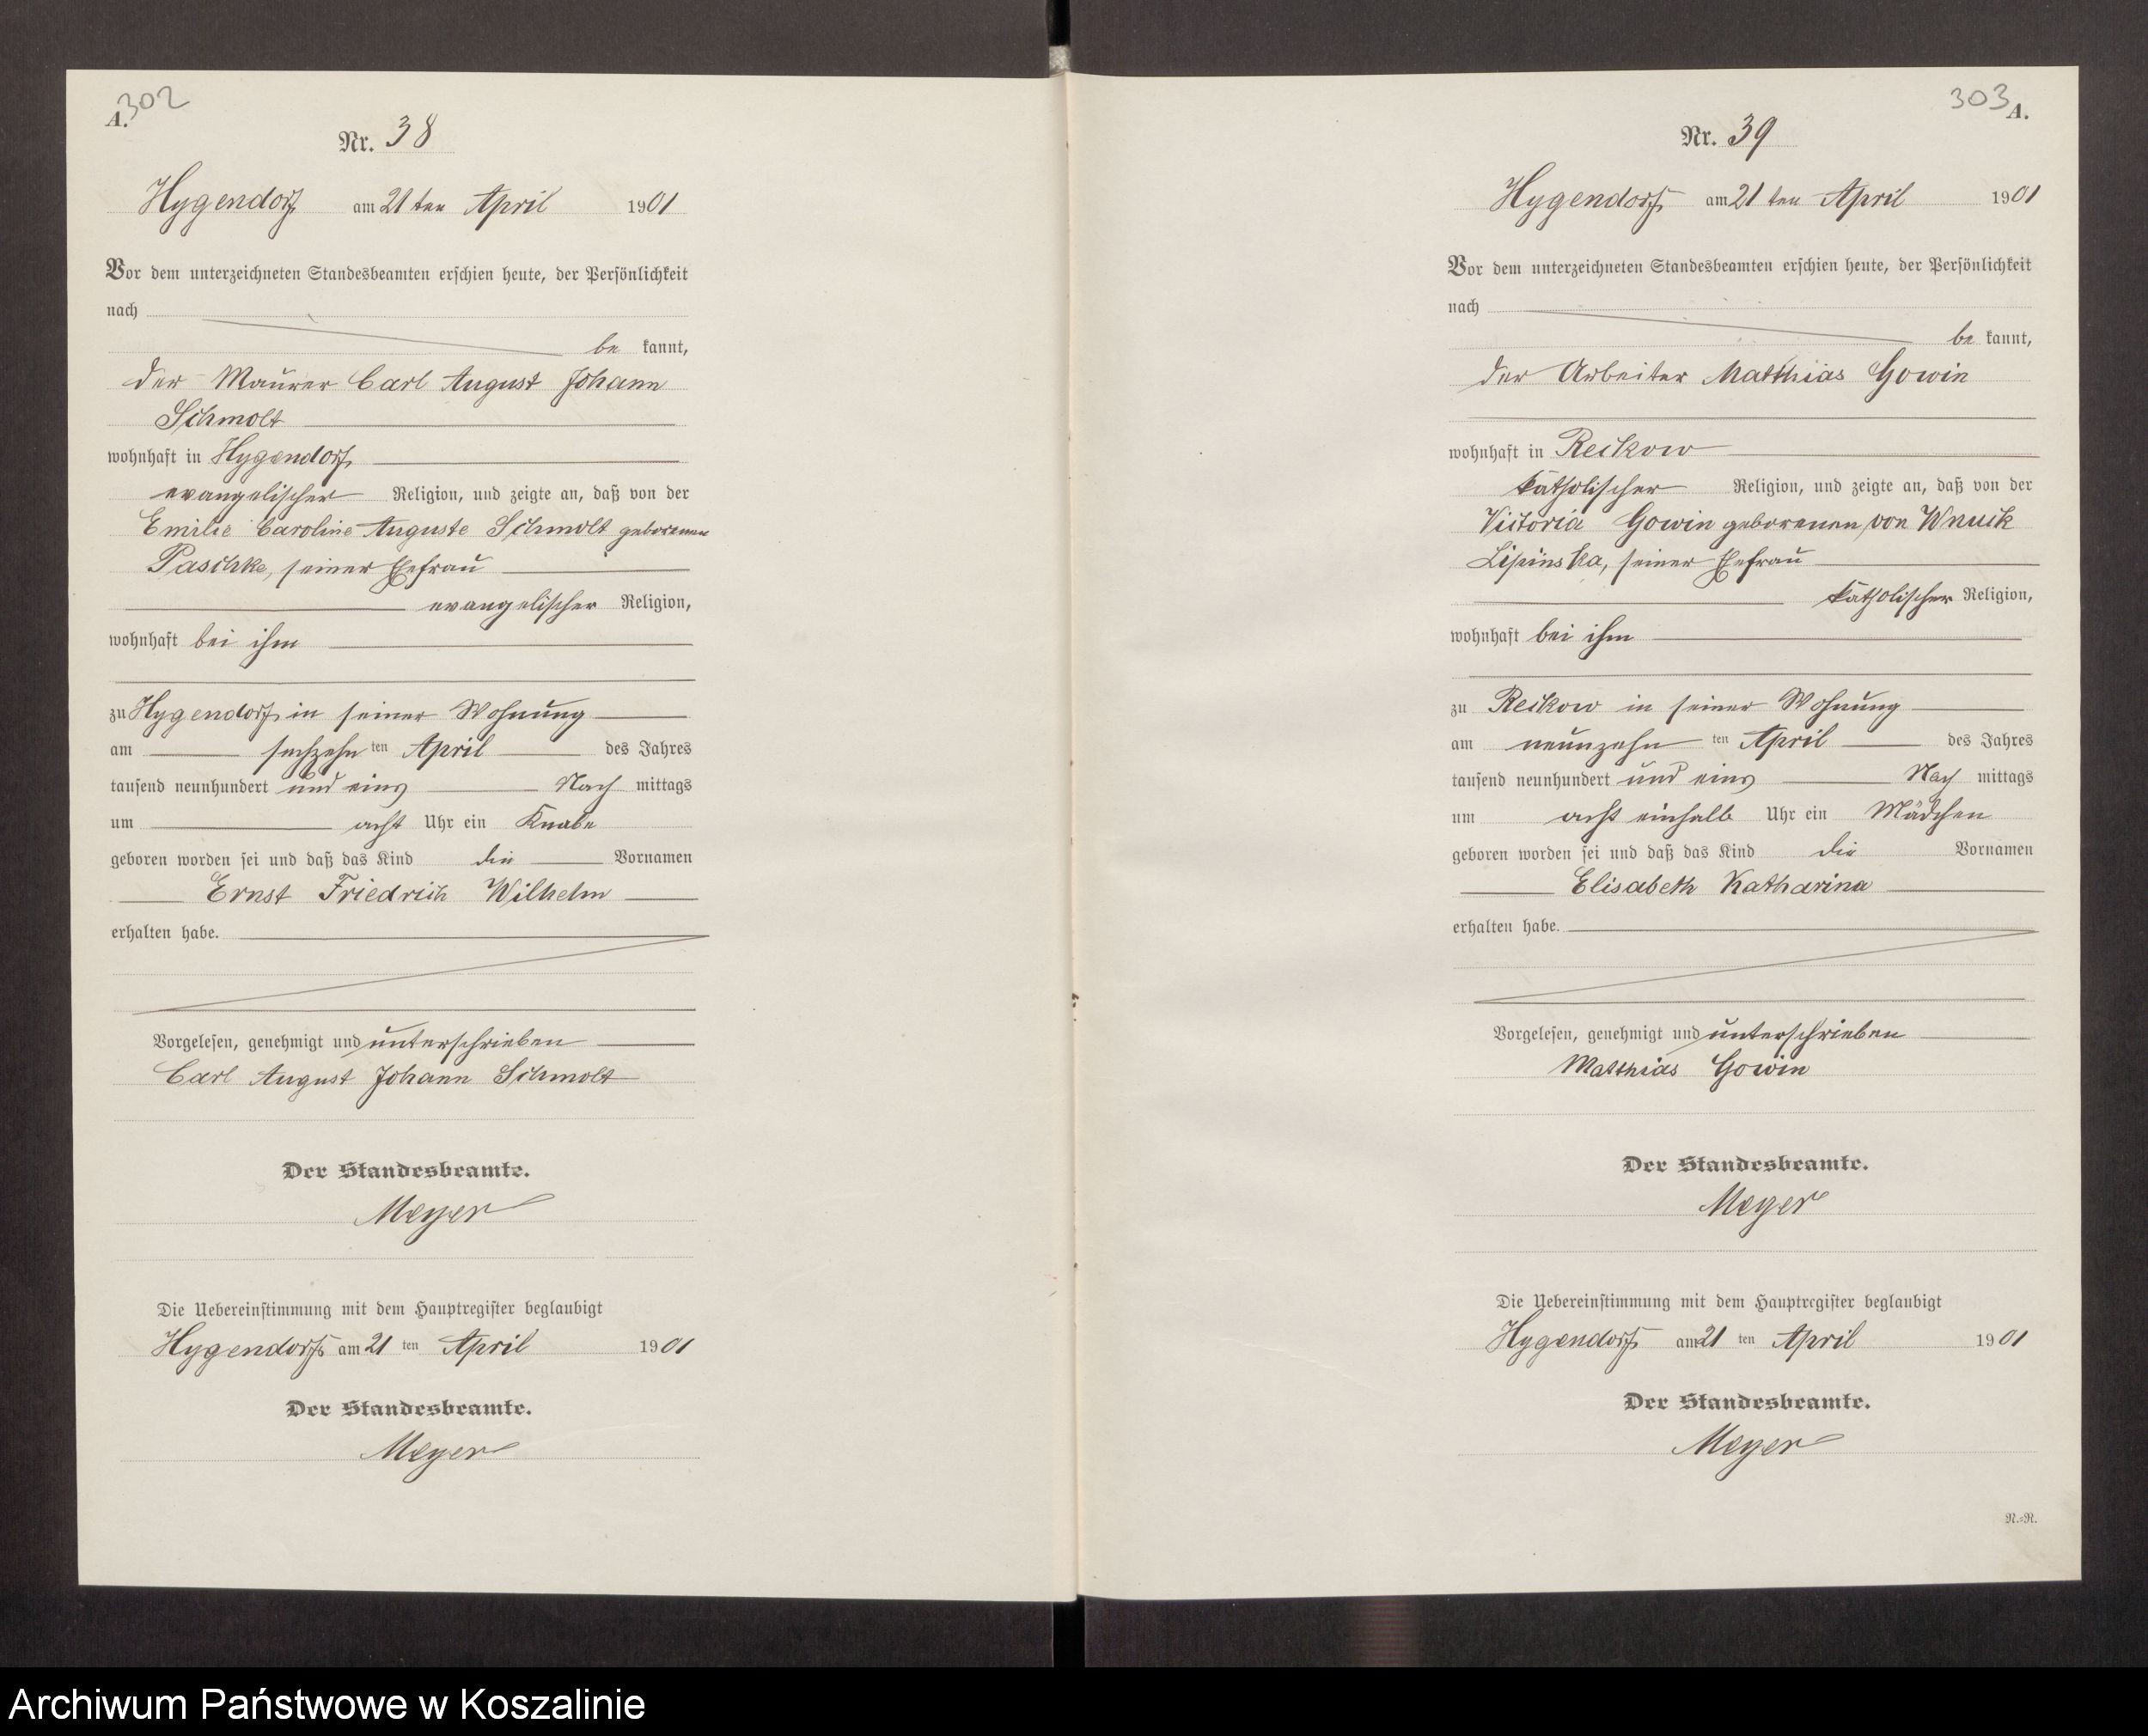 302
A.
Nr. 38
Hygendorf am 21 ten April 1901
Vor dem unterzeichneten Standesbeamten erschien heute, der Persönlichkeit
nach
be kannt,
der Maurer Carl August Johann
Schmolt
wohnhaft in Hygendorf
evangelischer Religion, und zeigte an, daß von der
Emilie Caroline Auguste Schmolt geborenen
Paschke, seiner Ehefrau
evangelischer Religion,
wohnhaft bei ihm
zu Hygendorf in seiner Wohnung
am sechzehn ten April des Jahres
tausend neunhundert und eins Nach mittags
um acht Uhr ein Knabe
geboren worden sei und daß das Kind die Vornamen
Ernst Friedrich Wilhelm
erhalten habe.
Vorgelesen, genehmigt und unterschrieben
Carl August Johann Schmolt
Der Standesbeamte.
Meyer
Die Uebereinstimmung mit dem Hauptregister beglaubigt
Hygendorf am 21 ten April 1901
Der Standesbeamte.
Meyer
303
A.
Nr. 39
Hygendorf am 21 ten April 1901
Vor dem unterzeichneten Standesbeamten erschien heute, der Persönlichkeit
nach
be kannt,
der Arbeiter Matthias Gowin
wohnhaft in Reckow
katholischer Religion, und zeigte an, daß von der
Victoria Gowin geborenen von Wnuck
Lipinska, seiner Ehefrau
katholischer Religion,
wohnhaft bei ihm
zu Reckow in seiner Wohnung
am neunzehn ten April des Jahres
tausend neunhundert und eins Nach mittags
um acht einhalb Uhr ein Mädchen
geboren worden sei und daß das Kind die Vornamen
Elisabeth Katharina
erhalten habe.
Vorgelesen, genehmigt und unterschrieben
Matthias Gowin
Der Standesbeamte.
Meyer
Die Uebereinstimmung mit dem Hauptregister beglaubigt
Hygendorf am 21 ten April 1901
Der Standesbeamte.
Meyer
N.=R.
Archiwum Państwowe w Koszalinie